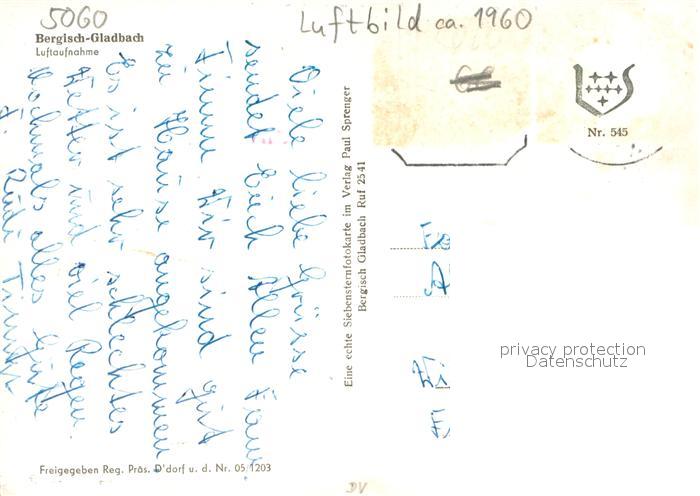 5060
Luftbild ca. 1960
Bergisch-Gladbach
Luftaufnahme
Viele liebe Grüsse
sendet Euch Allen Fam.
Timm Wir sind gut
zu Hause angekommen
Es ist sehr schlechtes
Wetter und viel Regen
Nochmals alles Gute
Eine echte Siebensternfotokarte im Verlag Paul Sprenger
Bergisch Gladbach Ruf 2541
Nr. 545
privacy protection
Datenschutz
Freigegeben Reg. Präs. D'dorf u. d. Nr. 05/1203
DV